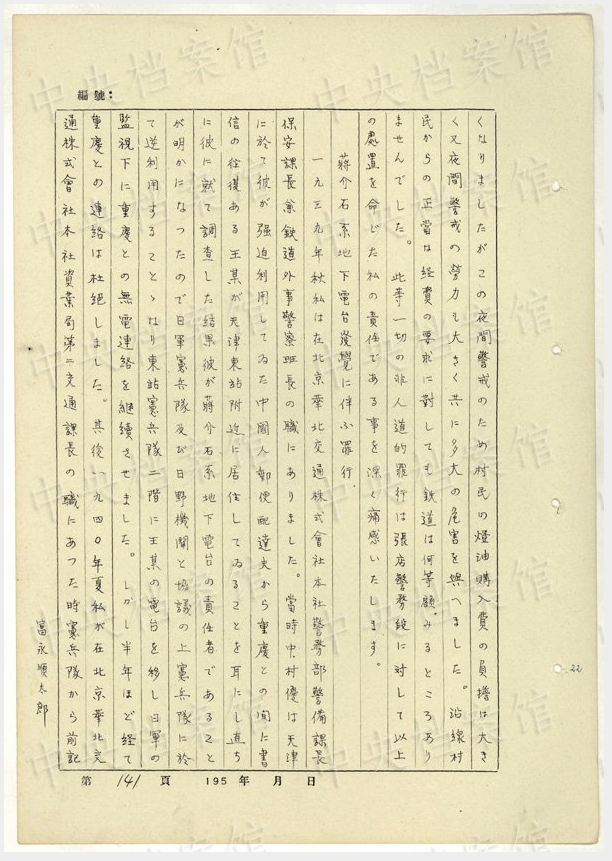 編號：
くなりましたがこの夜間警戒のため村民の燈油購入費の負擔は大き
く又夜間警戒の勞力も大きく共に多大の危害を與へました。沿線村
民からの正當な経費の要求に對しても鉄道は何等顧みるところあり
ませんでした。此等一切の非人道的罪行は張店警務段に対して以上
の處置を命じた私の責任である事を深く痛感いたします。
蔣介石系地下電台發覺に伴ふ罪行
一九三九年秋私は在北京華北交通株式會社本社警務部警備課長
保安課長兼鉄道外事警察班長の職にありました。當時中村優は天津
に於て彼が强迫利用してゐた中國人郵便配達夫から重慶との間に書
信の往復ある王某が天津東站附近に居住してゐることを耳にし直ち
に彼に就て調查した結果彼が蔣介石系地下電台の責任者であること
が明かになつたので日軍憲兵隊及び日野機関と協議の上憲兵隊に於
て逆利用することゝなり東站憲兵隊二階に王某の電台を移し日軍の
監視下に重慶との無電連絡を継續させました。しかし半年ほど経て
重慶との連絡は杜絶しました。其後一九四〇年夏私が在北京華北交
通株式會社本社資業局第二交通課長の職にあつた時憲兵隊から前記
富永順太郎
第 141 頁 195 年 月 日
22
中央档案馆